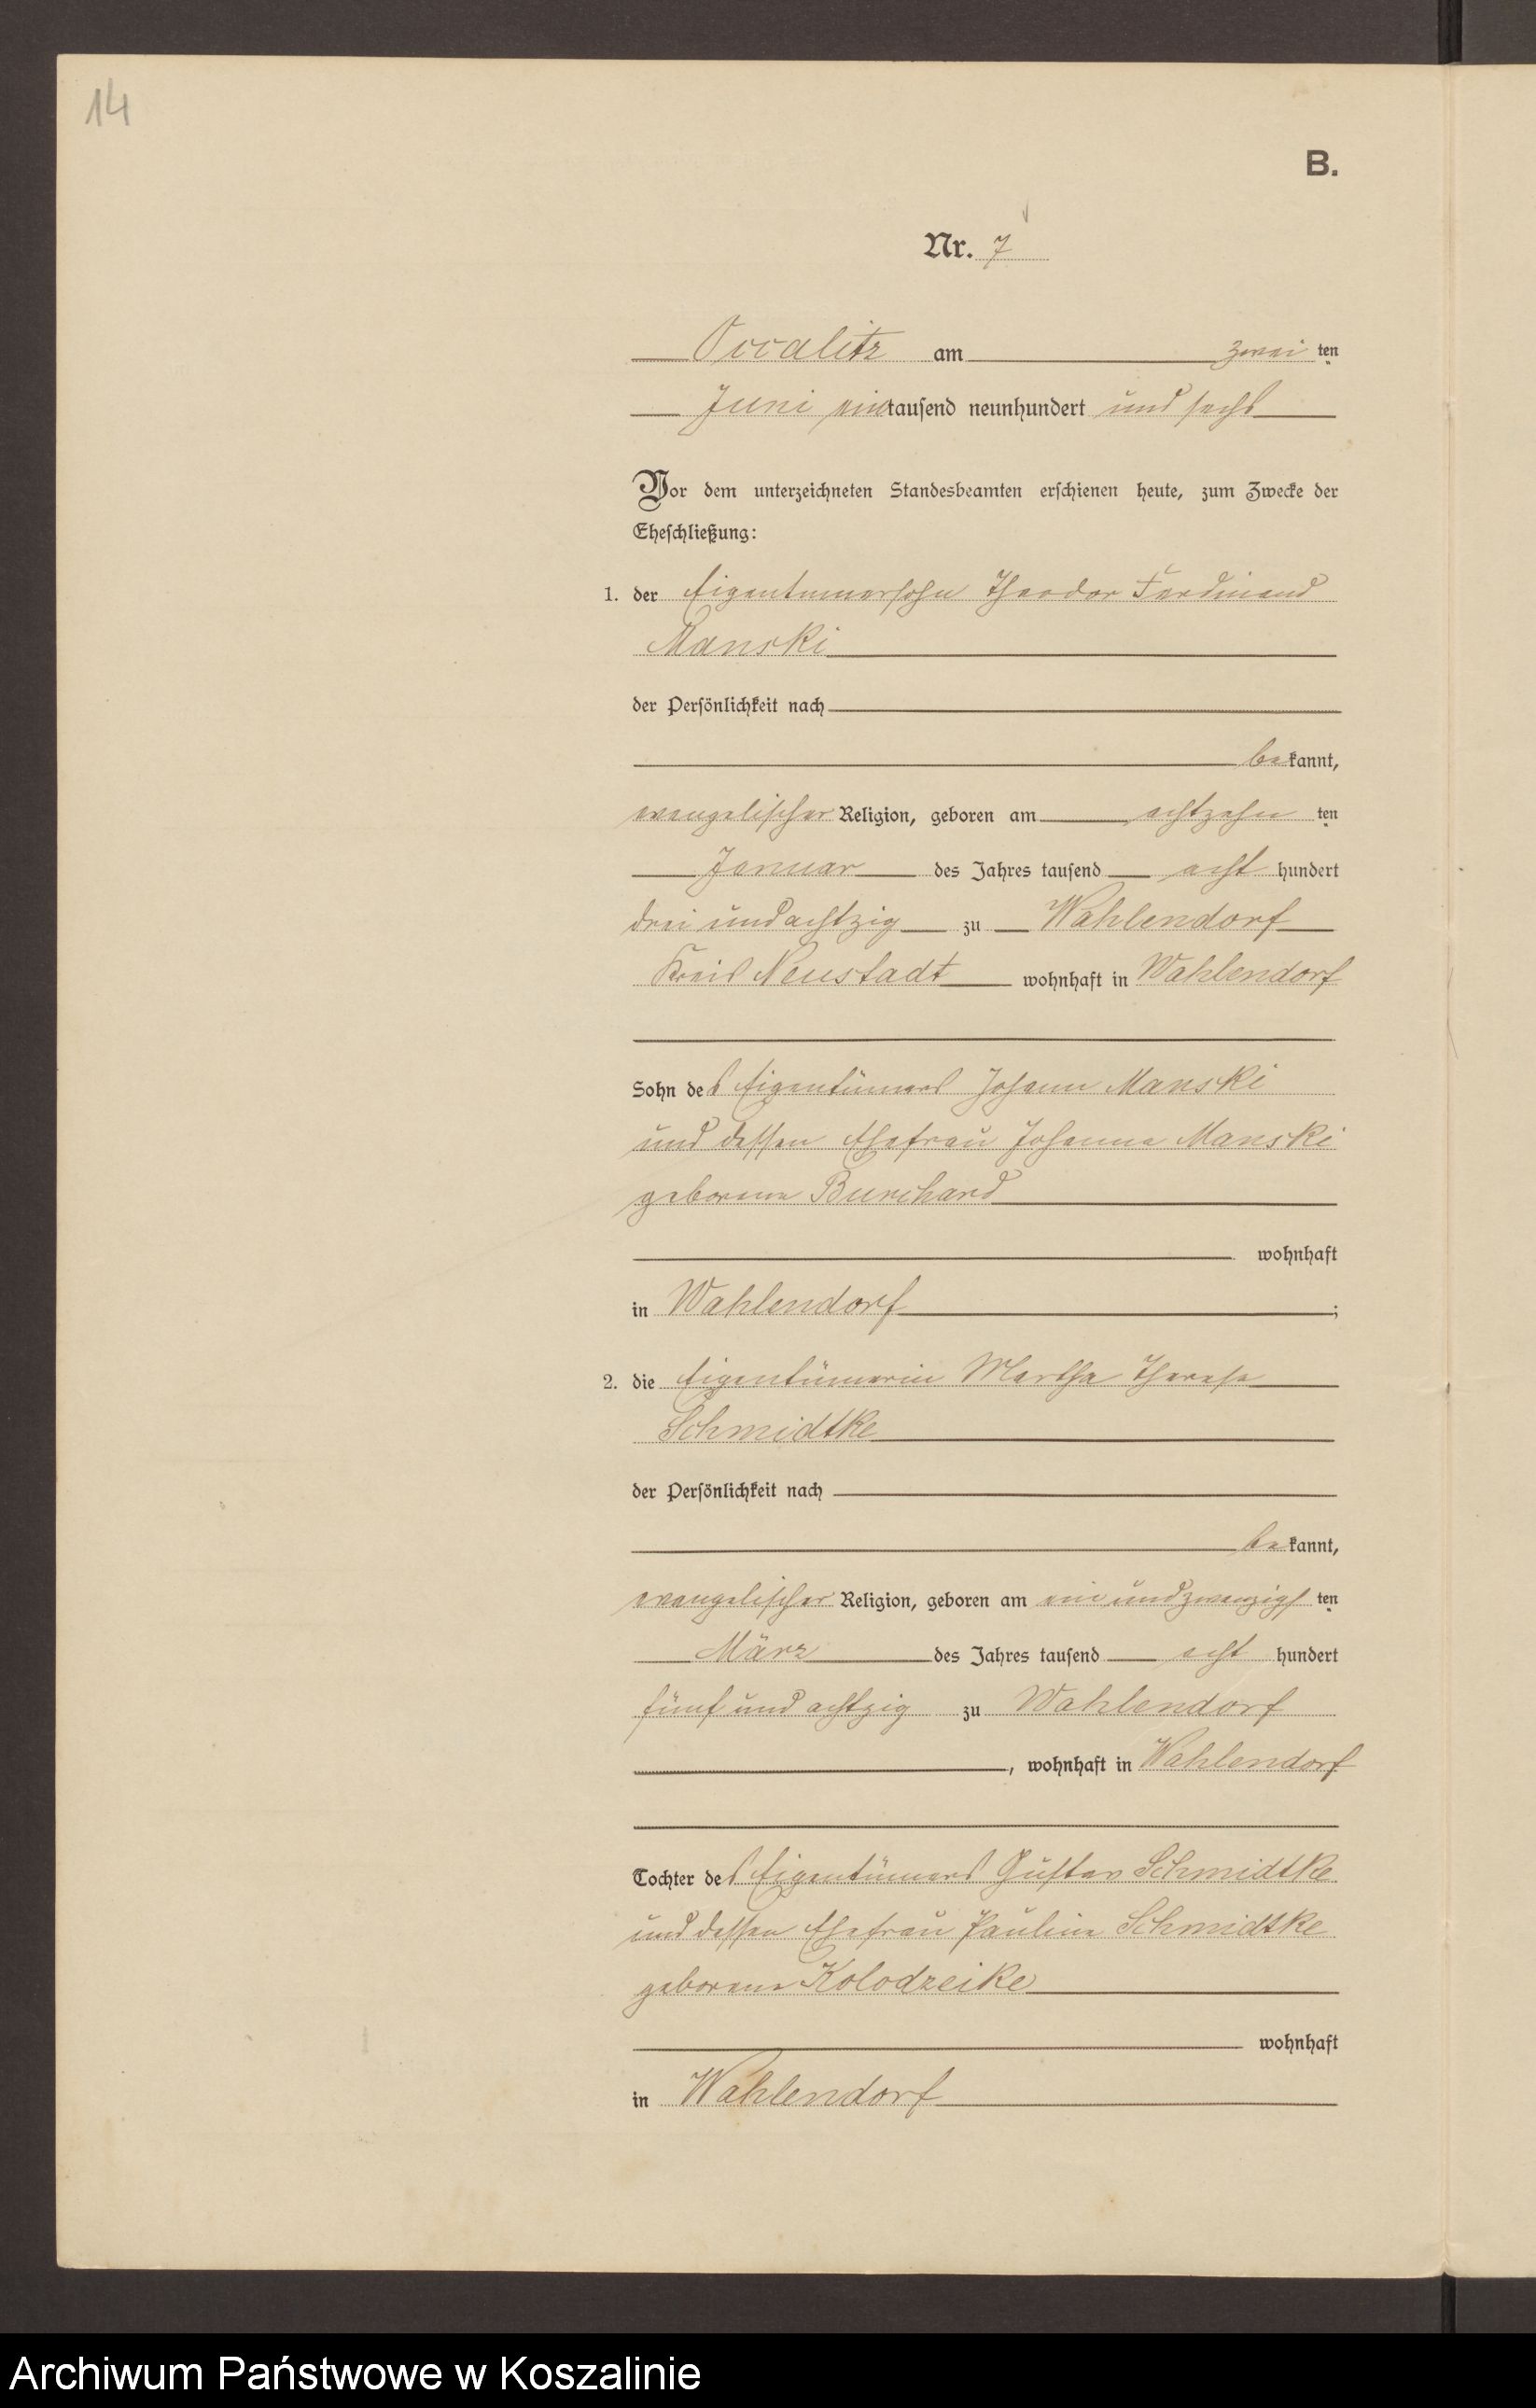 14
B.
Nr. 7
Occalitz am zwei ten
Juni eintausend neunhundert und sechs
Vor dem unterzeichneten Standesbeamten erschienen heute, zum Zwecke der
Eheschließung:
1. der Eigentumersohn Theodor Ferdinand
Manski
der Persönlichkeit nach
bekannt,
evangelischer Religion, geboren am achtzehn ten
Januar des Jahres tausend acht hundert
drei und achtzig zu Wahlendorf
Kreis Neustadt wohnhaft in Wahlendorf
Sohn des Eigentümers Johann Manski
und dessen Ehefrau Johanna Manski
geborene Burchard
wohnhaft
in Wahlendorf ;
2. die Eigentümerin Martha Therese
Schmidtke
der Persönlichkeit nach
bekannt,
evangelischer Religion, geboren am ein und zwanzigs ten
März des Jahres tausend acht hundert
fünf und achtzig zu Wahlendorf
, wohnhaft in Wahlendorf
Tochter des Eigentümers Gustav Schmidtke
und dessen Ehefrau Pauline Schmidtke
geborene Kolodzeike
wohnhaft
in Wahlendorf
Archiwum Państwowe w Koszalinie